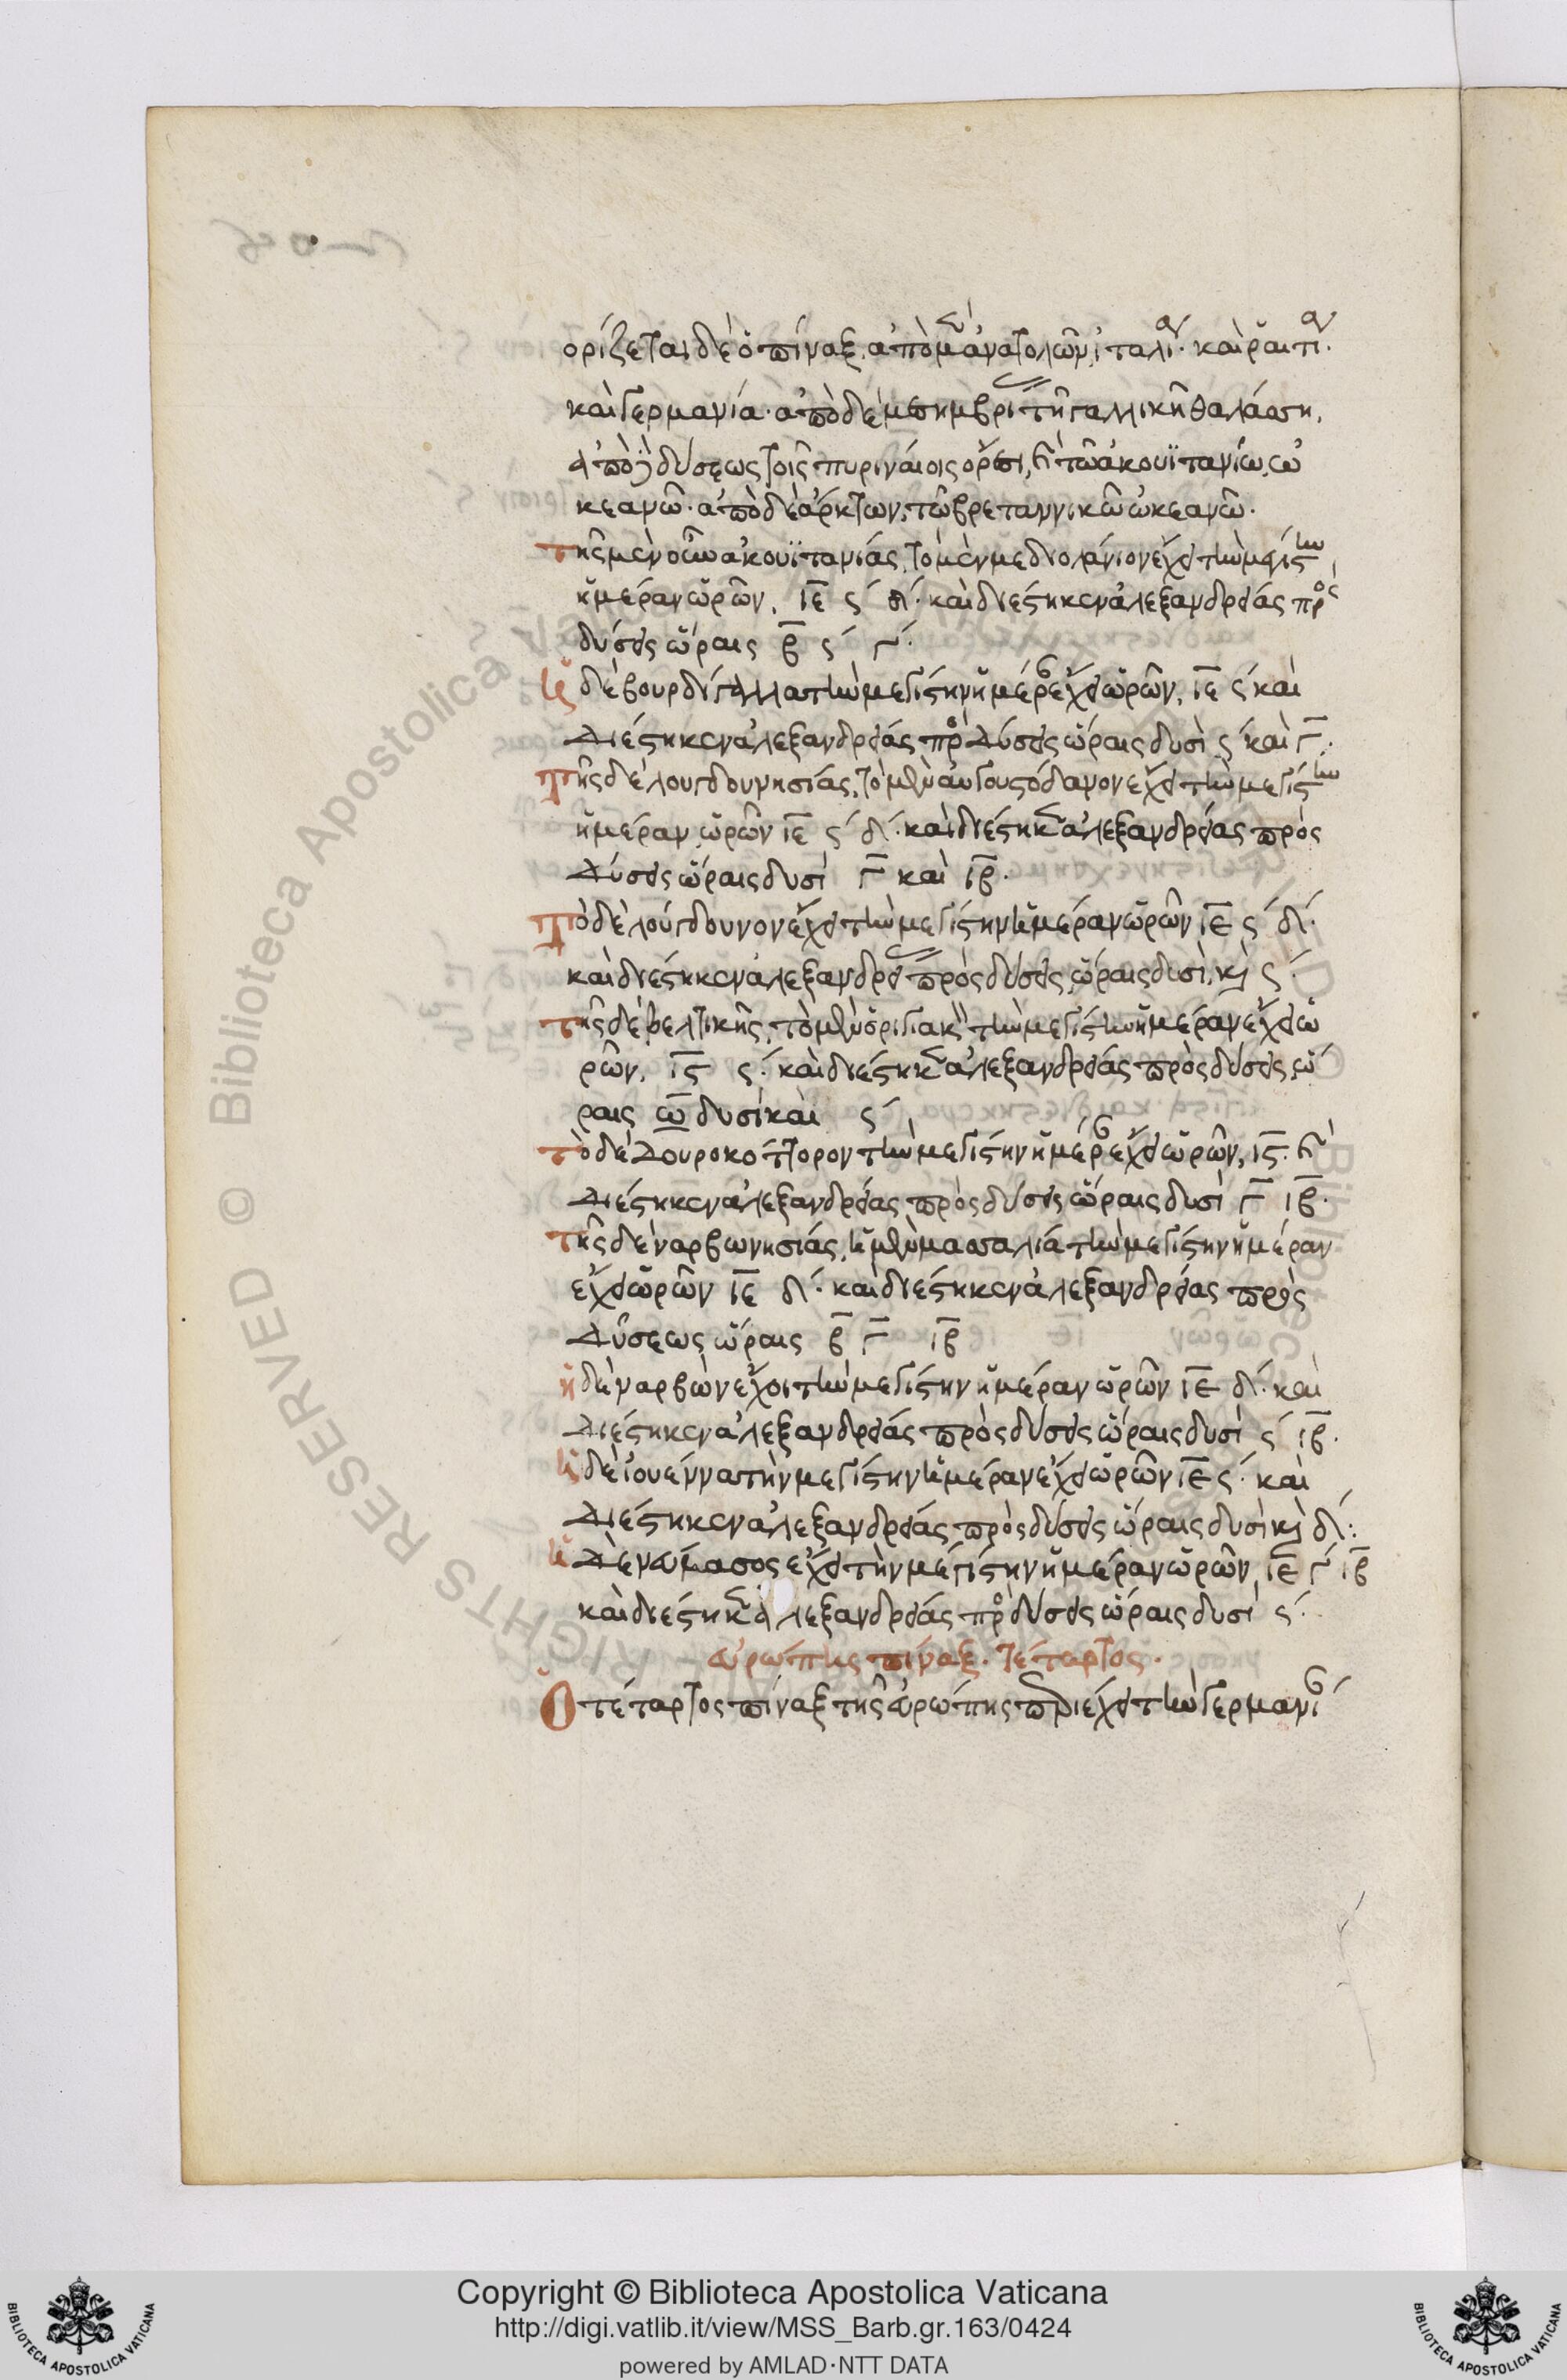 ὁρίζεται δὲ ὁ πίναξ ἀπὸ μ ἀνατολῶν, ἰταλί. καὶ ῥαιτ.
καὶ γερμανία. ἀπὸ δὲ μεσημβρι τῇ γαλλικῇ θαλάσση,
ἀπὸ δὲ δύσεως τοῖς πυριναίοις ὄρεσι, καὶ τῶ ἀκουϊτανίω, ὠ
κεανῶ. ἀπὸ δὲ ἄρκτων, τῶ βρεταννικῶ ὠκεανῶ.
τῆς μὲν οὖν ἀκουϊτανίας, τὸ μὲν μεδιολάνιον ἔχει τὴν μεγίστην
ἡμέραν ὡρῶν, ιε ς δ. καὶ διέστηκεν ἀλεξανδρείας πρὸς
δύσεις ὥραις β ς γ.
ἡ δὲ βουρδίγαλλα τὴν μεγίστην ἡμέραν ἔχει ὡρῶν, ιε ς καὶ
διέστηκεν ἀλεξανδρείας πρὸ δύσεις ὥραις δυσὶ ς καὶ γ.
τῆς δὲ λουγδουνησίας, τὸ μὲν αὐγουστόδανον ἔχει τὴν μεγίστην
ἡμέραν ὡρῶν ιε ς δ. καὶ διέστηκεν ἀλεξανδρείας πρὸς
δύσεις ὥραις δυσὶ γ καὶ ιβ.
τὸ δὲ λούγδουνον ἔχει τὴν μεγίστην ἡμέραν ὡρῶν ιε ς δ.
καὶ διέστηκεν ἀλεξανδρεί πρὸς δύσεις ὥραις δυσὶ, καὶ ς.
τῆς δὲ βελγικῆς, τὸ μὲν τὴν μεγίστην ἡμέραν ἔχει ὡ
ρῶν, ις ς. καὶ διέστηκεν ἀλεξανδρείας πρὸς δύσεις, ὥ
ραις ω δυσὶ καὶ ς
τὸ δὲ δουροκόττορον τὴν μεγίστην ἡμέραν ἔχει ὡρῶν, ις. καὶ
διέστηκεν ἀλεξανδρείας πρὸς δύσεις ὥραις δυσὶ γ ιβ.
τῆς δὲ ναρβωνησίας, ἡ μὲν μασσαλία τὴν μεγίστην ἡμέραν
ἔχει ὡρῶν ιε δ. καὶ διέστηκεν ἀλεξανδρείας πρὸς
δύσεως ὥραις β γ ιβ
ἡ δὲ ναρβὼν ἔχοι τὴν μεγίστην ἡμέραν ὡρῶν ιε δ. καὶ
διέστηκεν ἀλεξανδρείας πρὸς δύσεις ὥραις δυσὶ ς ιβ.
ἡ δὲ ἰουέννα τὴν μεγίστην ἡμέραν ἔχει ὡρῶν ιε ς. καὶ
διέστηκεν ἀλεξανδρείας πρὸς δύσεις ὥραις δυσὶ καὶ δ.
ἡ δὲ νώμασος ἔχει τὴν μεγίστην ἡμέραν ὡρῶν, ιε γ ιβ
καὶ διέστηκεν ἀλεξανδρείας πρὸ δύσεις ὥραις δυσὶ ς.
εὐρώπης πίναξ. τέταρτος.
Ὁ τέταρτος πίναξ τῆς εὐρώπης περιέχει τὴν γερμανί
Copyright © Biblioteca Apostolica Vaticana
http://digi.vatlib.it/view/MSS_Barb.gr.163/0424
powered by AMLAD·NTT DATA